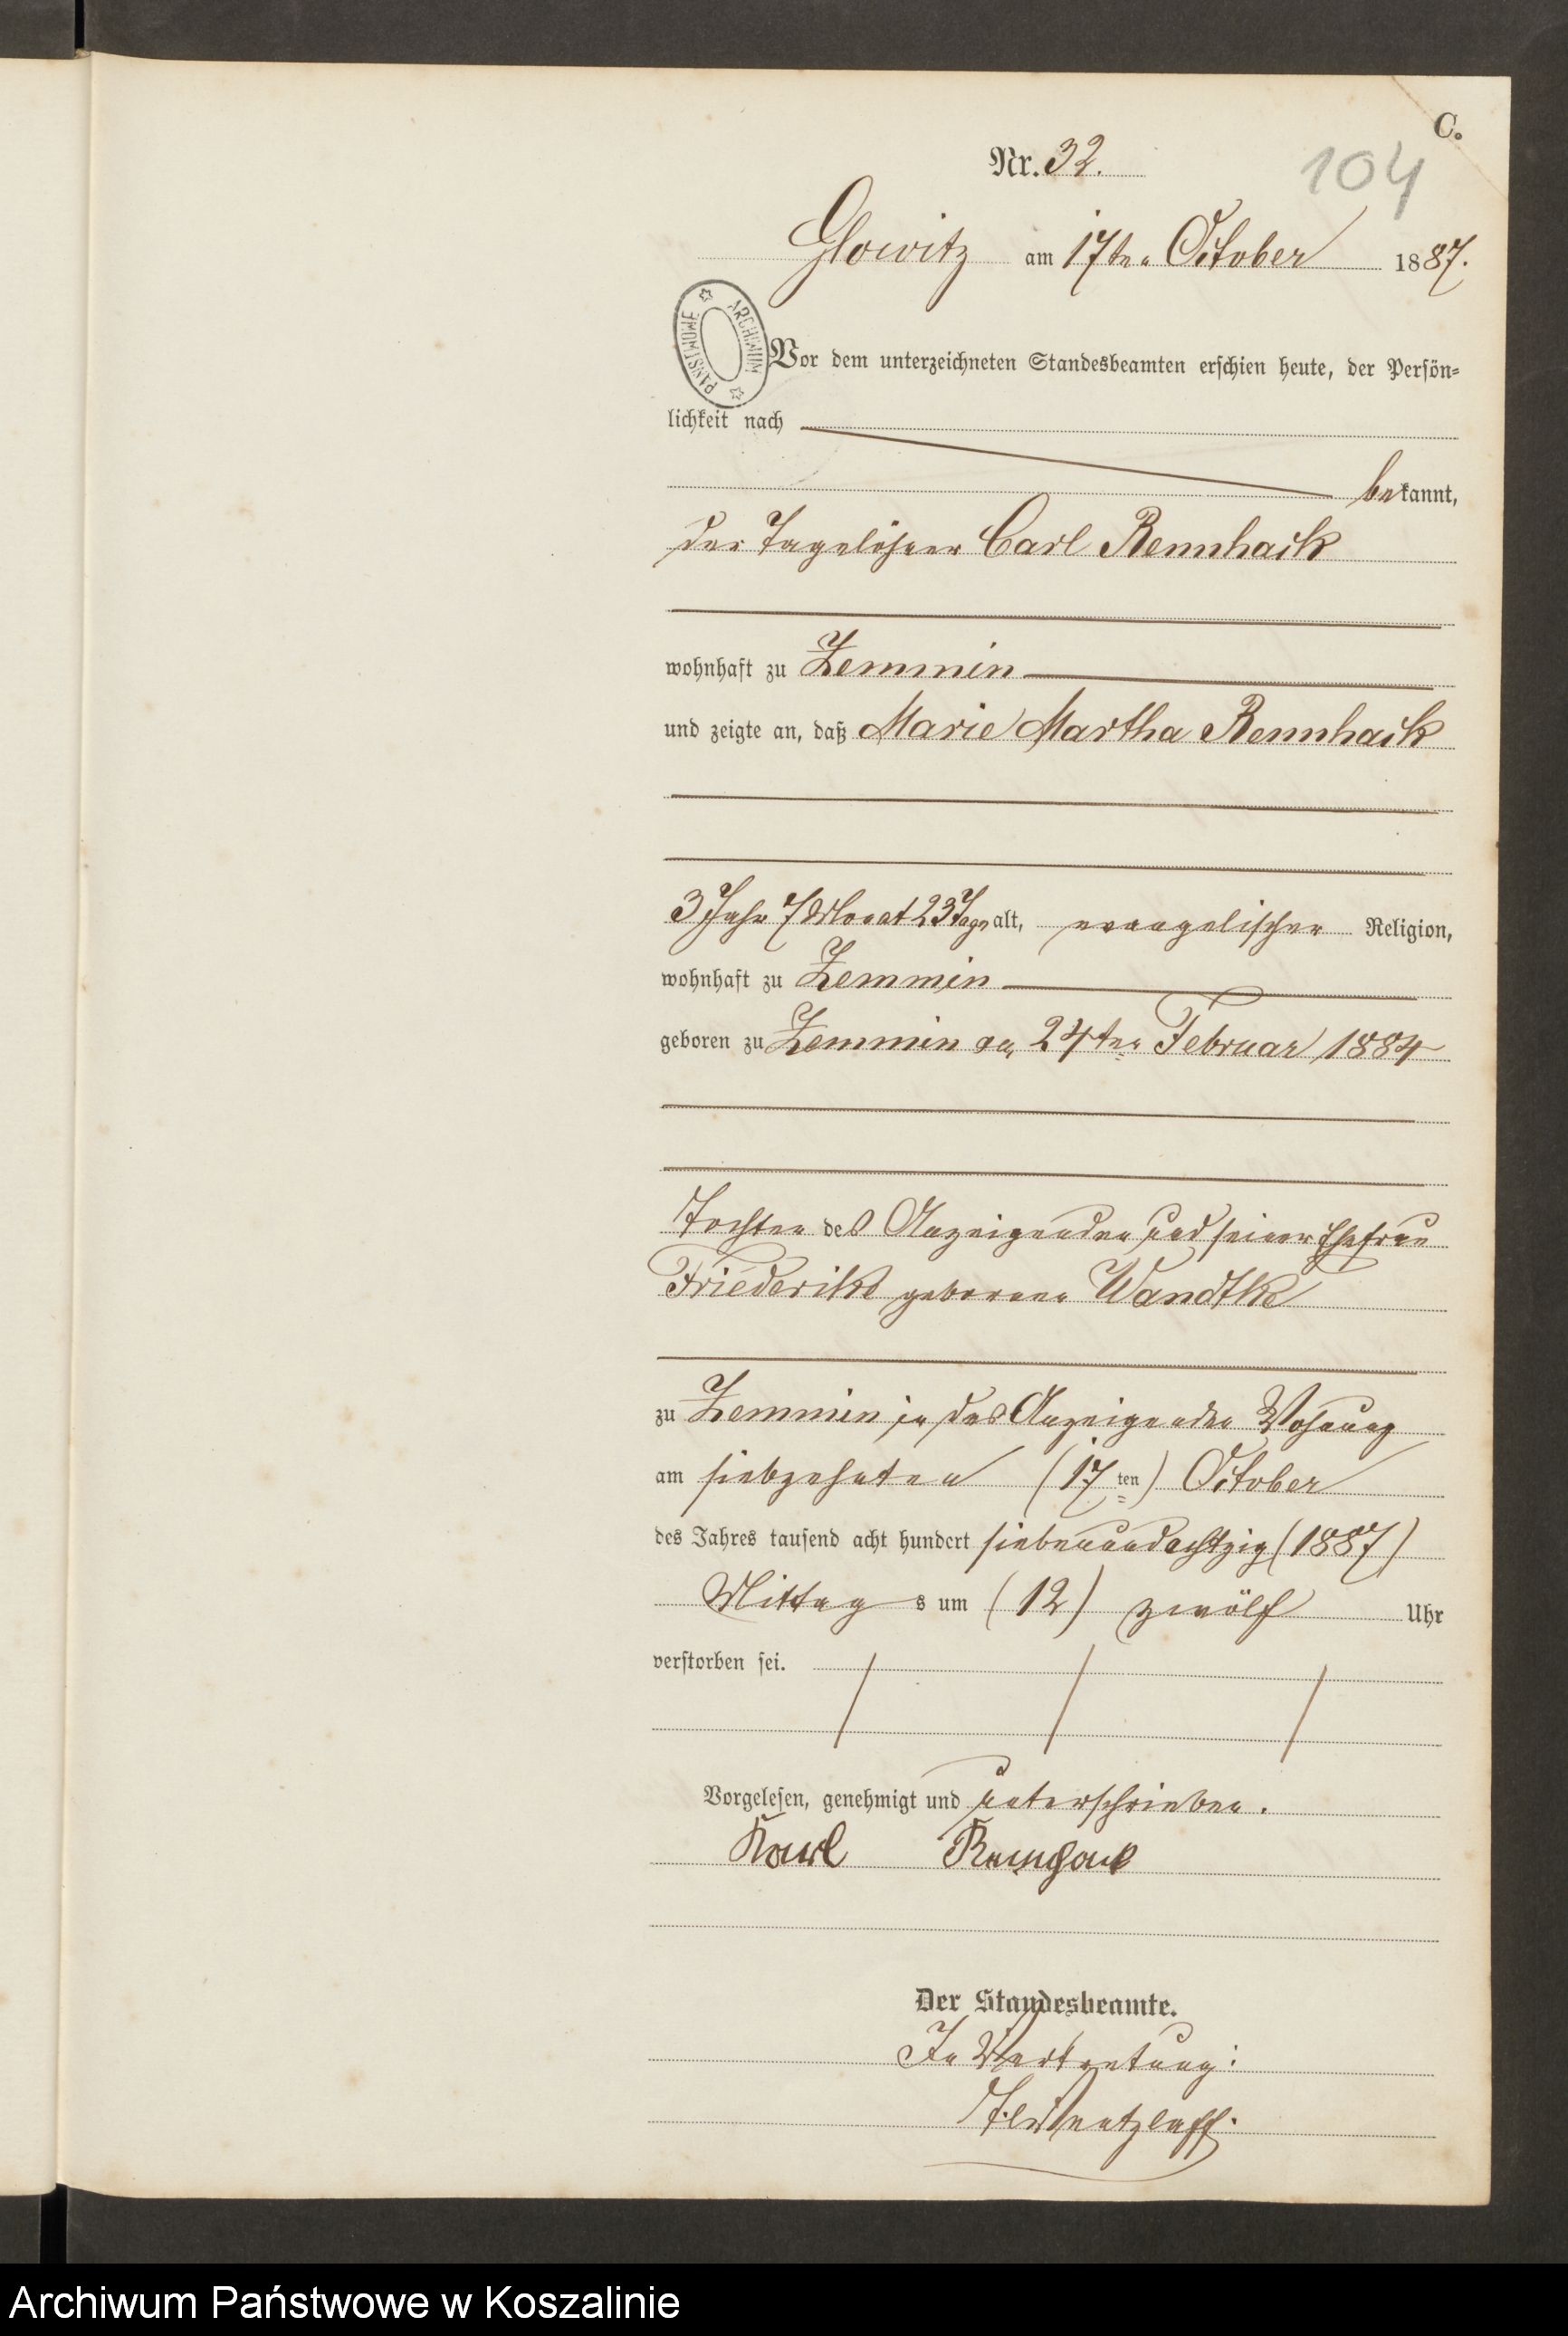 C.
Nr. 32.
104
Glowitz am 17ten October 1887.
ARCHIWUM PAŃSTWOWE
Vor dem unterzeichneten Standesbeamten erschien heute, der Persön-
lichkeit nach
bekannt,
der Tagelöhner Carl Rennhack
wohnhaft zu Zemmin
und zeigte an, daß Marie Martha Rennhack
3 Jahr 7 Monat 23 Tage alt, evangelischer Religion,
wohnhaft zu Zemmin
geboren zu Zemmin am 24ten Februar 1884
Tochter des Anzeigenden und seiner Ehefrau
Friederike geborene Wandtke
zu Zemmin in des Anzeigenden Wohnung
am siebzehnten (17ten) October
des Jahres tausend acht hundert siebenundachtzig (1887)
Mittags um (12) zwölf Uhr
verstorben sei.
Vorgelesen, genehmigt und unterschrieben.
Karl Rennhack
Der Standesbeamte.
In Vertretung:
Archiwum Państwowe w Koszalinie